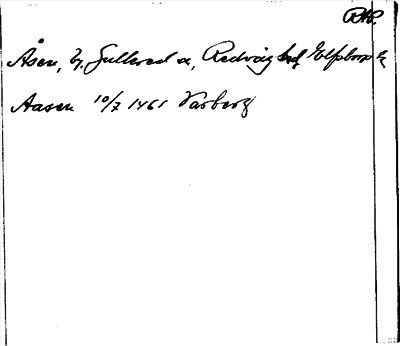 RAp.
Åsen, by. Gullered sn, Redväg hd Elfsborg l.
Aasen 10/7 1461 Varberg